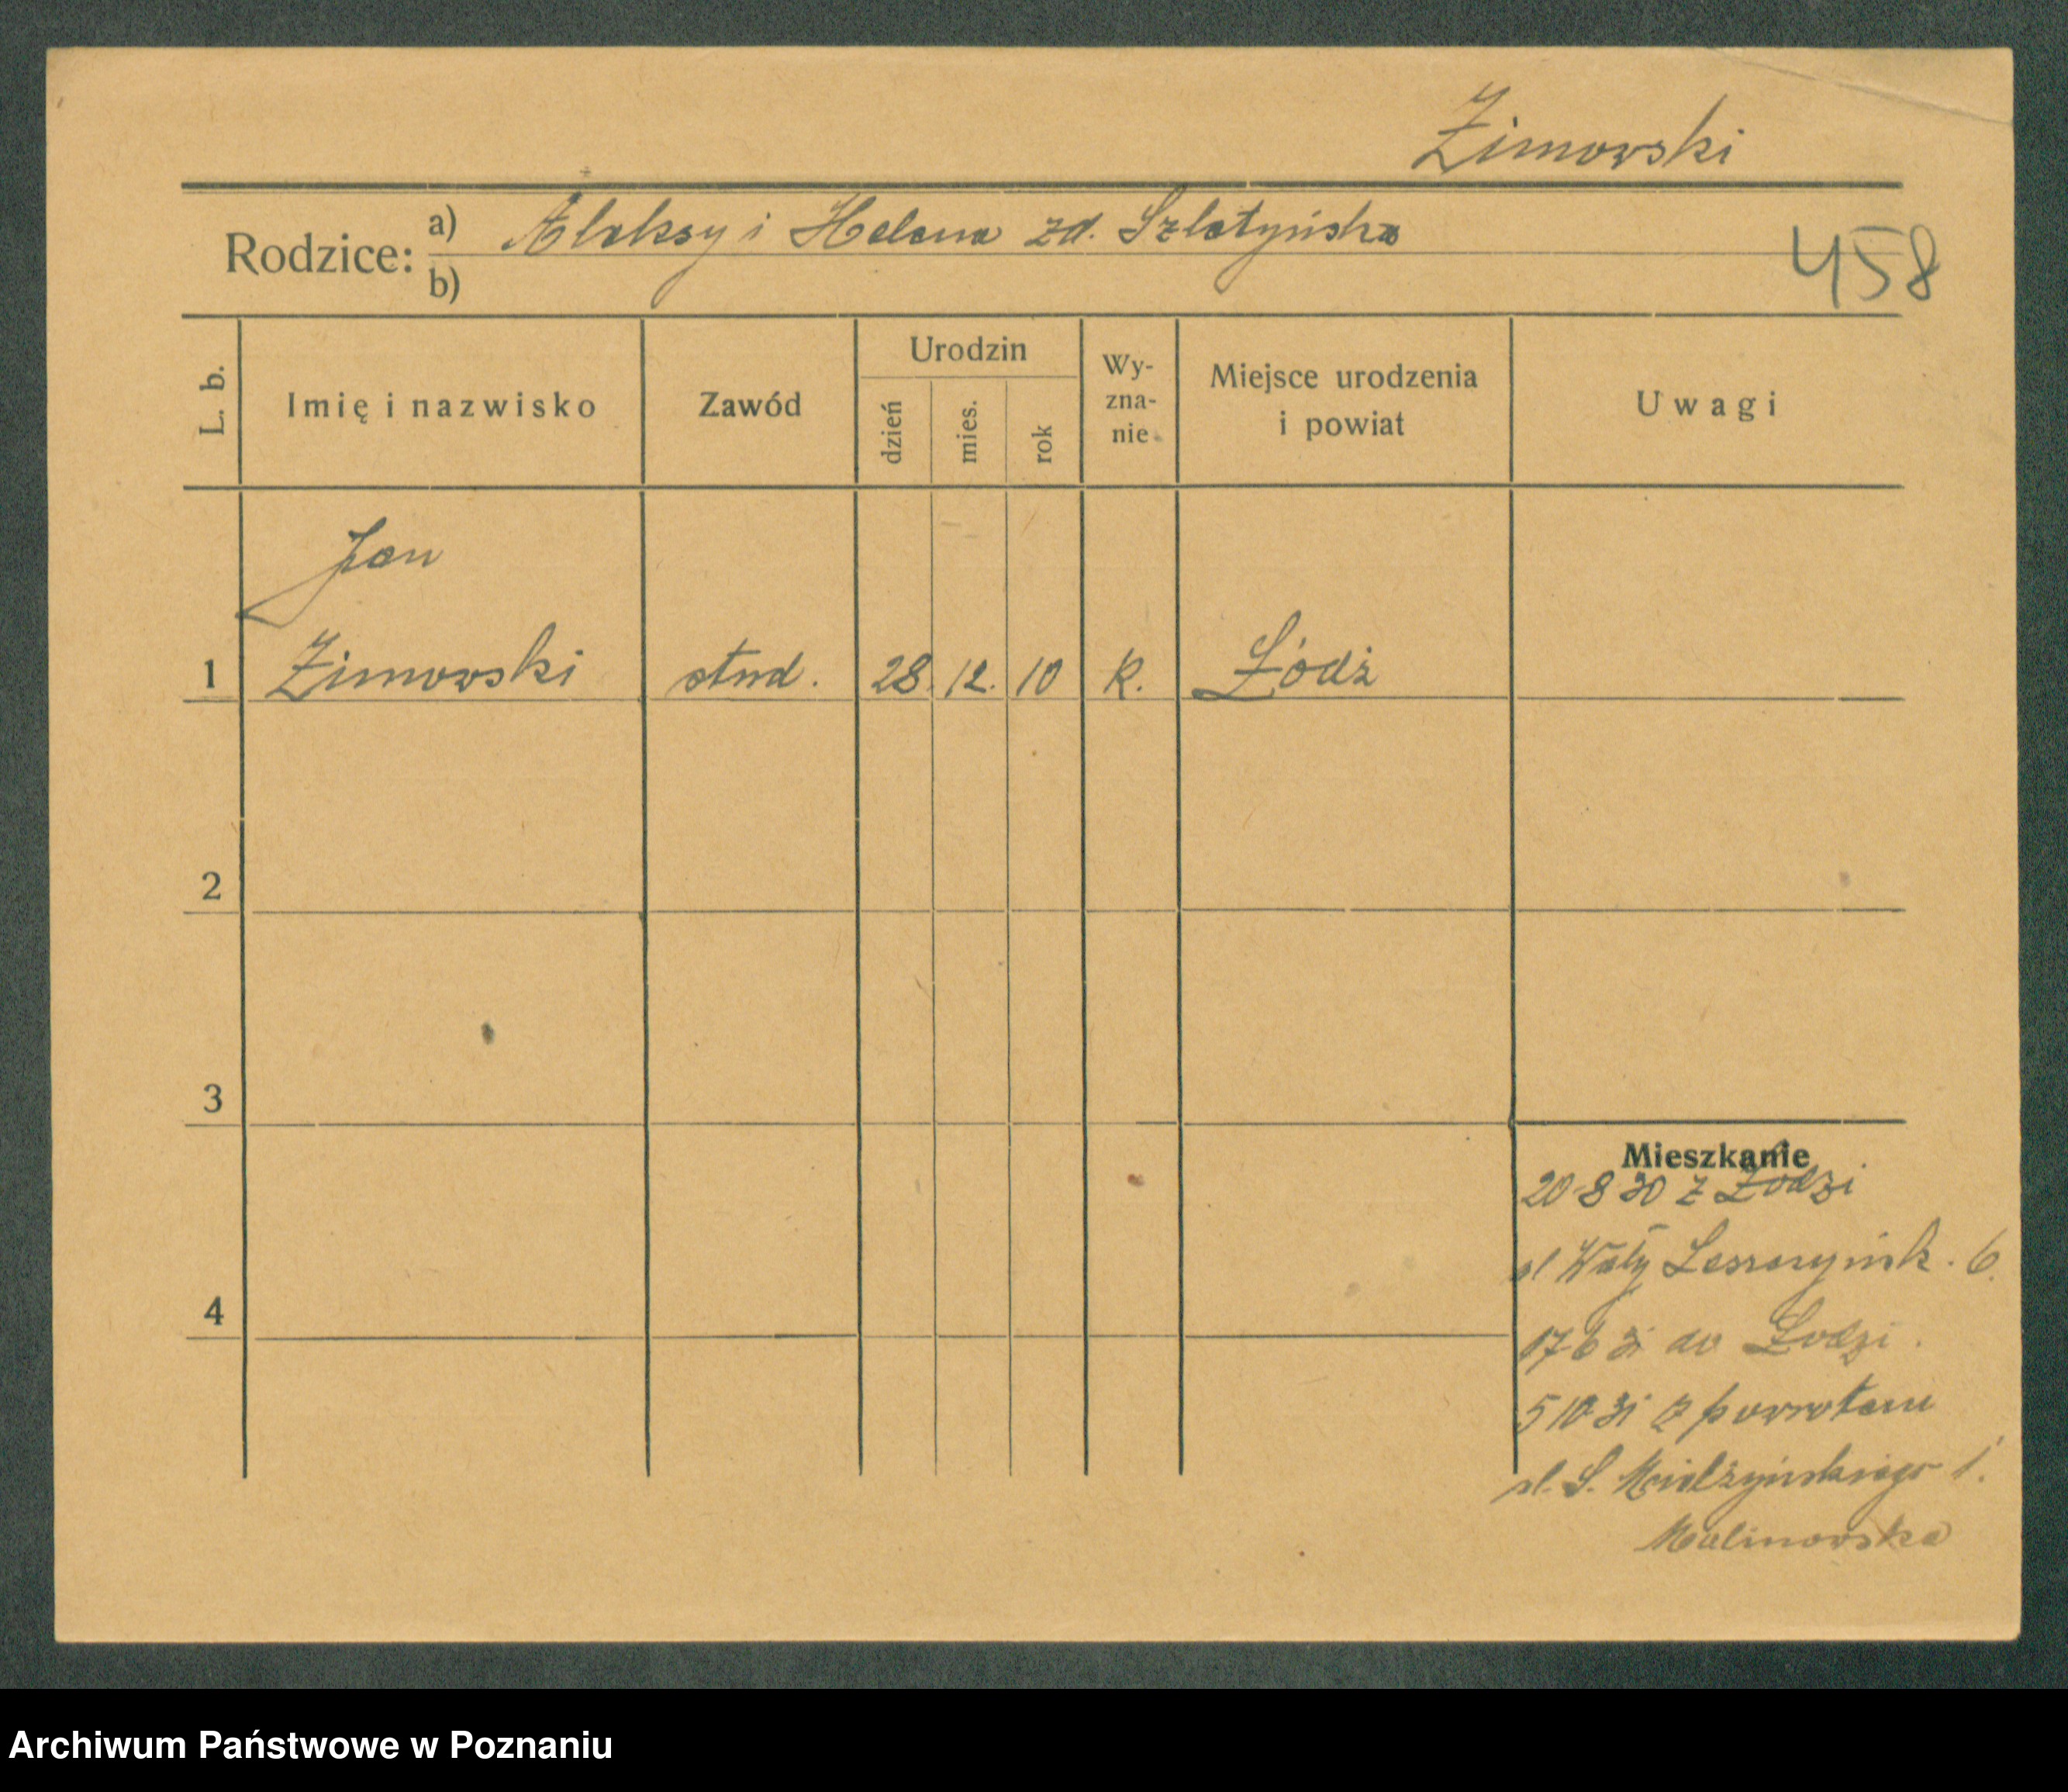 Zimowski
Rodzice: a) Aleksy i Helena zd. Szletyńska
b)
458
L. b.
Imię i nazwisko
Zawód
Urodzin
dzień
mies.
rok
Wy-
zna-
nie
Miejsce urodzenia
i powiat
Uwagi
Jan
1 Zimowski stud. 28. 12. 10 K. Łódź
2
3
4
Mieszkanie
20 8 30 z Łodzi
ul Wały Leszczyńsk. 6.
17 6 31 do Łodzi.
5 10 31 z powrotem
ul. S. Mielżyńskiego 1.
Malinowska
Archiwum Państwowe w Poznaniu